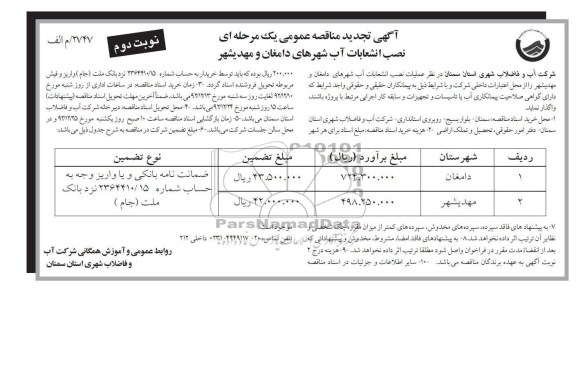 آگهی تجدید مناقصه عمومی یک مرحله ای
نصب انشعابات آب شهرهای دامغان و مهدیشهر
نوبت دوم
۲۷۴۷/م الف
شرکت آب و فاضلاب شهری استان سمنان در نظر عملیات نصب انشعابات آب شهرهای دامغان و
مهدیشهر را از محل اعتبارات داخلی شرکت و با شرایط ذیل به پیمانکاران حقیقی و حقوقی واجد شرایط که
دارای گواهی صلاحیت پیمانکاری آب یا تاسیسات و تجهیزات و سابقه کار اجرایی مرتبط با پروژه باشند،
واگذار نماید.
۱- محل خرید اسناد مناقصه: سمنان- بلوار بسیج- روبروی استانداری- شرکت آب و فاضلاب شهری استان
سمنان- دفتر امور حقوقی، تحصیل و تملک اراضی ۲- هزینه خرید اسناد مناقصه: مبلغ اسناد برای هر شهر
۲۰۰.۰۰۰ ریال بوده که باید توسط خریدار به حساب شماره ۲۳۶۴۴۱۰/۱۵ نزد بانک ملت (جام) واریز و فیش
مربوطه تحویل فروشنده اسناد گردد. ۳- زمان خرید اسناد مناقصه: در ساعات اداری از روز شنبه مورخ
لغایت روز سه شنبه مورخ می باشد، ضمناً آخرین مهلت تحویل اسناد مناقصه (پیشنهادات)
ساعت ۱۵ روز شنبه مورخ می باشد. ۴- محل تحویل اسناد مناقصه: دبیرخانه شرکت آب و فاضلاب
استان سمنان می باشد. ۵- زمان بازگشایی اسناد مناقصه ساعت ۱۰ صبح روز یکشنبه مورخ و در
محل سالن جلسات شرکت می باشد. ۶- مبلغ تضمین شرکت در مناقصه به شرح جدول ذیل می باشد:
ردیف شهرستان مبلغ برآورد (ریال) مبلغ تضمین نوع تضمین
۱ دامغان ۲۳.۵۰۰.۰۰۰ ریال
۲ مهدیشهر ۴۹۸.۲۵۰.۰۰۰ ۴۲.۰۰۰.۰۰۰ ریال
ضمانت نامه بانکی و یا واریز وجه به
حساب شماره ۲۳۶۴۴۱۰/۱۵ نزد بانک
ملت (جام)
ParsNamadData
۷- به پیشنهاد های فاقد سپرده، سپرده های مخدوش، سپرده های کمتر از میزان مقرر، چک شخصی و
نظایر آن ترتیب اثر داده نخواهد شد. ۸- به پیشنهادهای فاقد امضاء، مشروط، مخدوش و پیشنهاداتی که
بعد از انقضاء مدت مقرر در فراخوان واصل شود مطلقا ترتیب اثر داده نخواهد شد. ۹- هزینه درج ۲
نوبت آگهی به عهده برندگان مناقصه می باشد. ۱۰- سایر اطلاعات و جزئیات در اسناد مناقصه
داخلی ۲۱۲
روابط عمومی و آموزش همگانی شرکت آب
و فاضلاب شهری استان سمنان